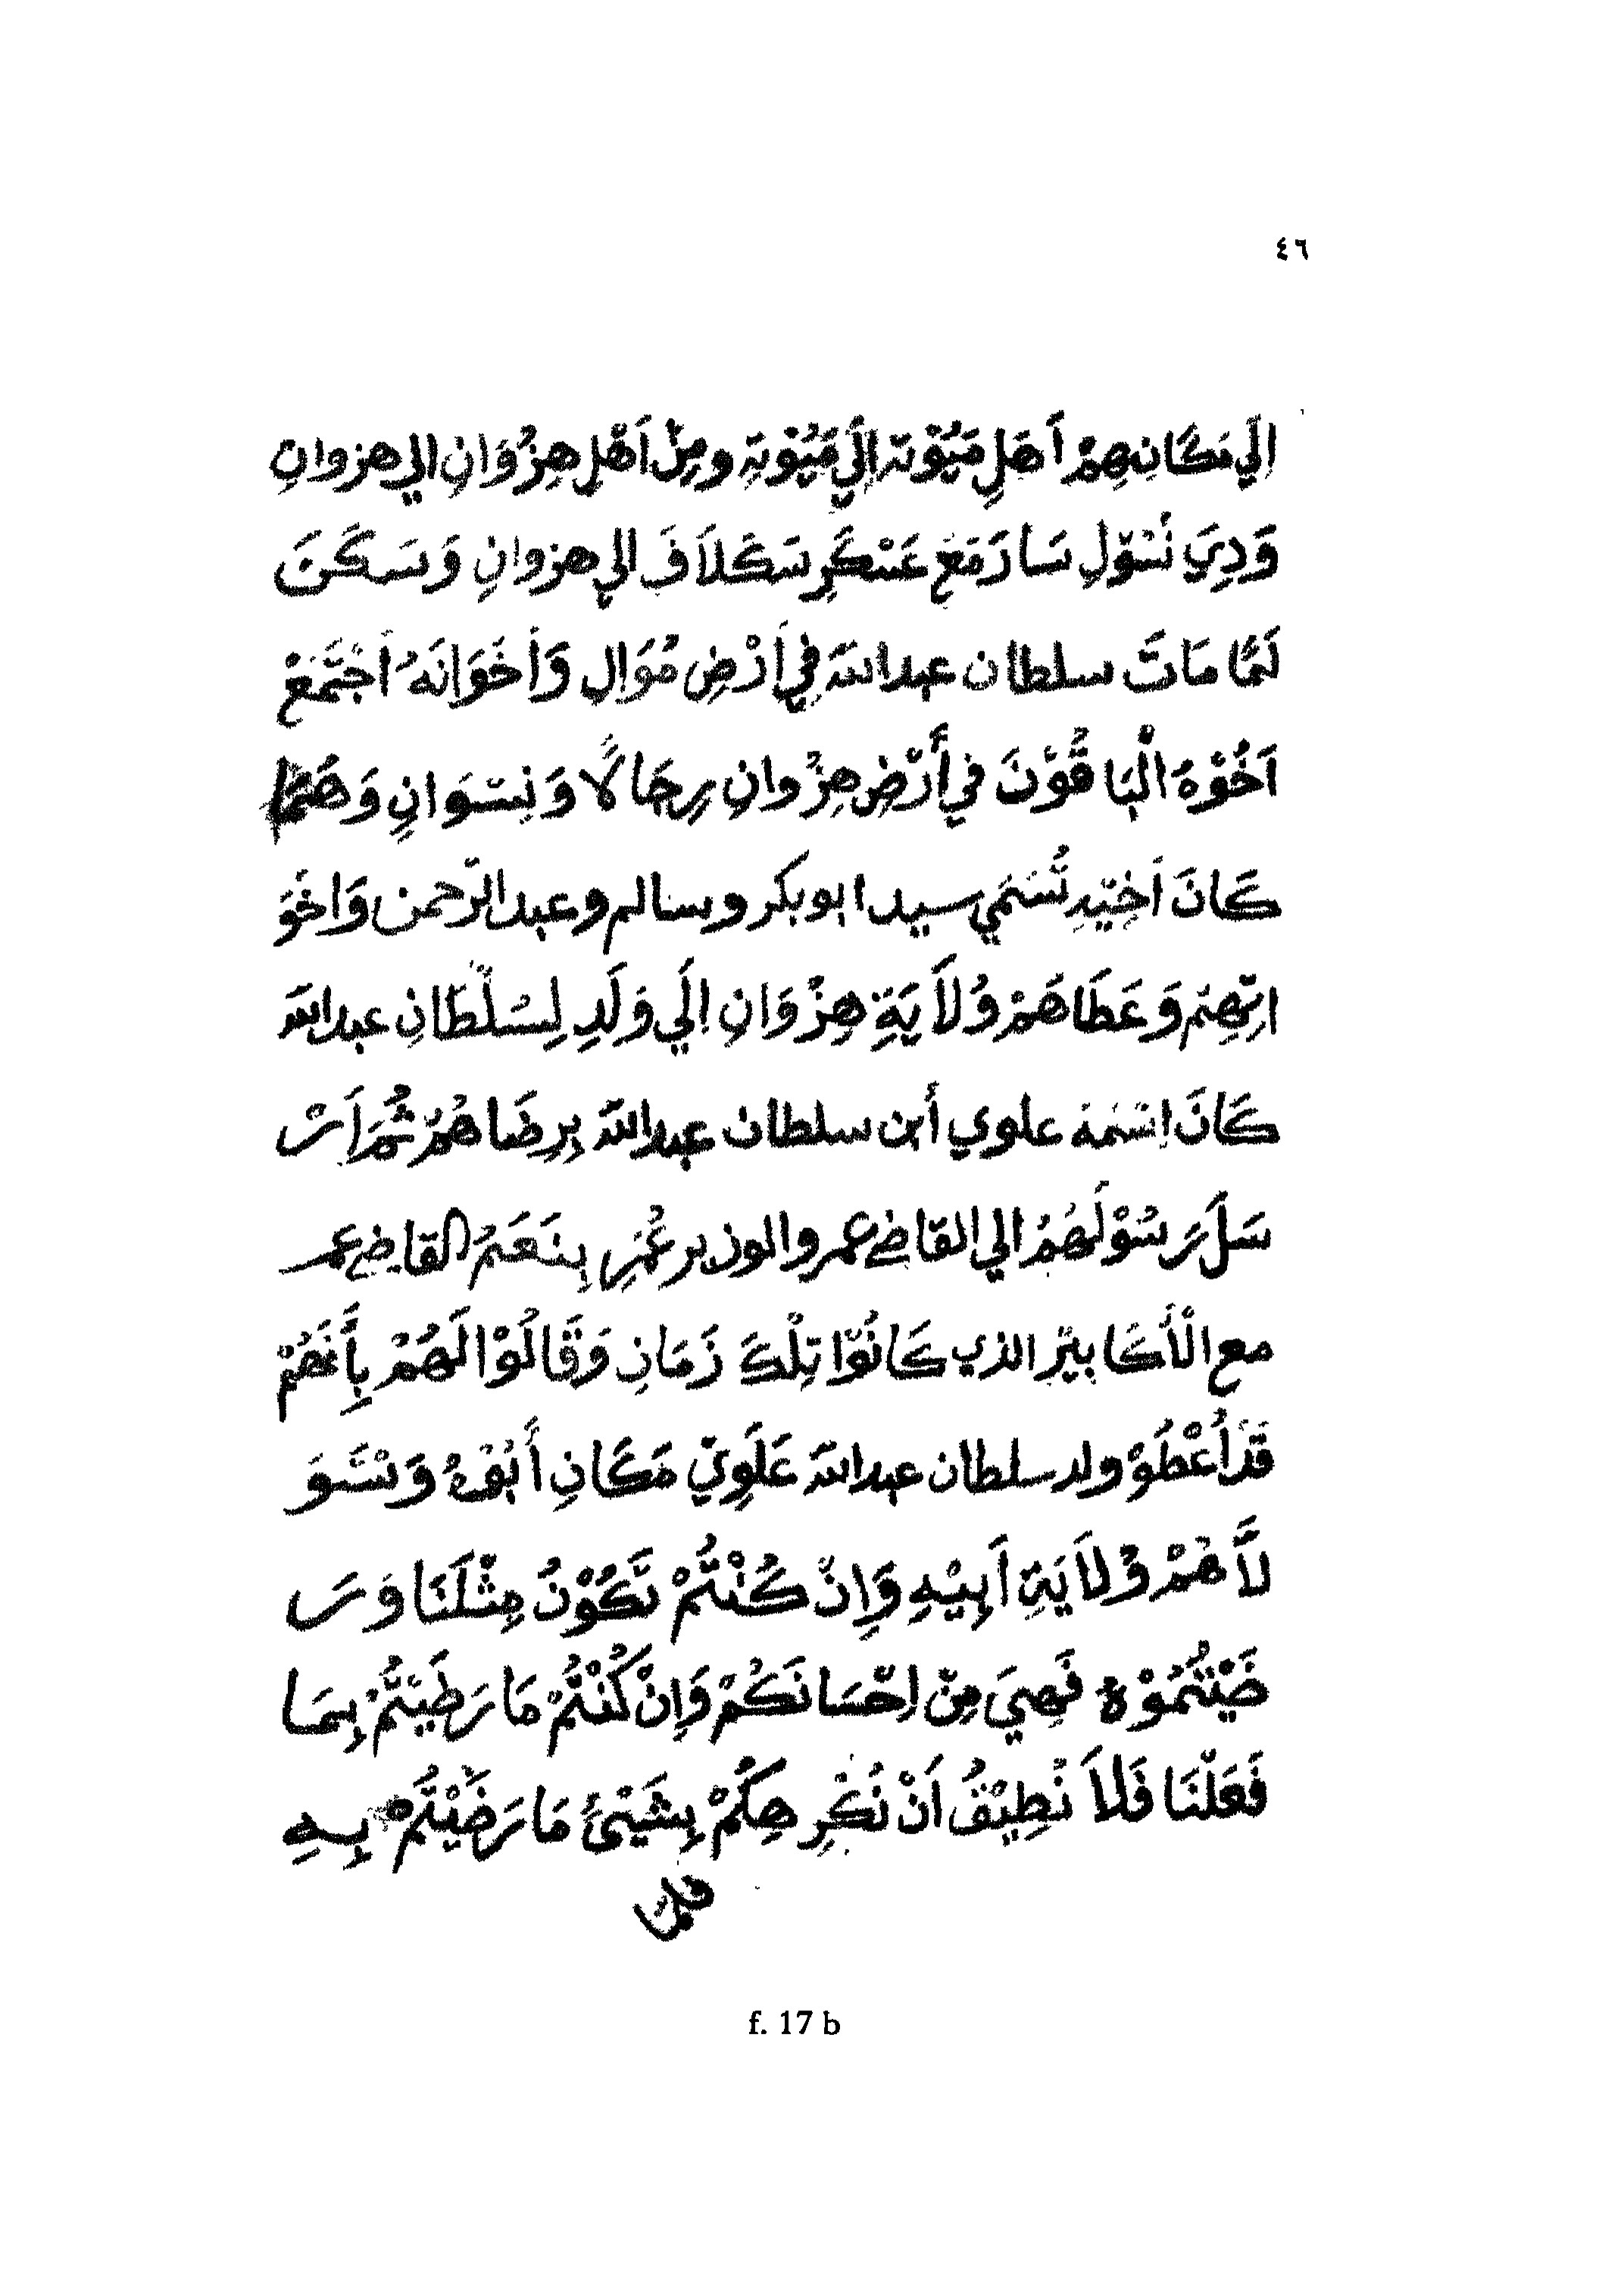 ٤٦
اِلَي مَكَانِهِمْ اَهَلِ مَيُوْتَة اِلَي مَيُوْتِةِ ومِنْ اَهْلِ هِزْوَانِ الي هزوانِ
وَدِيَ نَسُوْلِ سَارَ مَعَ عَسْكَرِ سَكَلاَفَ الي هزوانِ وَسَكَنَ
لَمَّا مَاتَ سلطان عبدالله في اَرْضِ مُوَالِ وَاَخَوَانَهُ اَجْتَمَعْ
اَخُوْهُ الْبَاقُوْنَ في أَرْضِ هِزْوانِ رِجَالًا وَنِسْوَانِ وَهُمَّا
كَانَ اَخِيْدِ تُسَمَي سيد ابوبكر وسالم وعبدالرّحمن وَاخَوَ
اتِهِم وَعَطَاهُمْ وُلاَيَةِ هِزْوَانِ اِلَي وَلَدِ لِسُلْطَانِ عبدالله
كَانَ اِسْمُهُ علوي أبن سلطان عبدالله بِرِضَاهُمْ ثُمَ اَرْ
سَلَ رَسُوْلَهُمْ الي القاضي عمر والوزير عُمَرِ بِنَعَمُ القاضي عمر
مع الْأَكَابِيْرْ الذي كَانُوْا تِلْكَ زَمَانِ وَقَالُوْا لَهُمْ بِأَنَهُمْ
قَدْ أَعْطَوْ ولد سلطان عبدالله عَلَوِيْ مَكَانِ أَبُوْهُ وَسَْوَ
لَّاهُمْ وُلاَيَةِ اَبِيْهِ وَاِنْ كُنْتُمْ تَكُوْنُ مِثْلَنَا وَرَ
ضَيْتُمُوْهُ فَهِيَ مِنْ اِحْسَانَكُمْ وَاِنْ كُنْتُمْ مَا رَظَيْتُمْ بِمَا
فَعَلْنَا فَلاَ نُطِيْقُ اَنْ نُكْرِ هِكُمْ بِشَيْئٍ مَا رَضَيْتُمْ بِهِ
f. 17 b